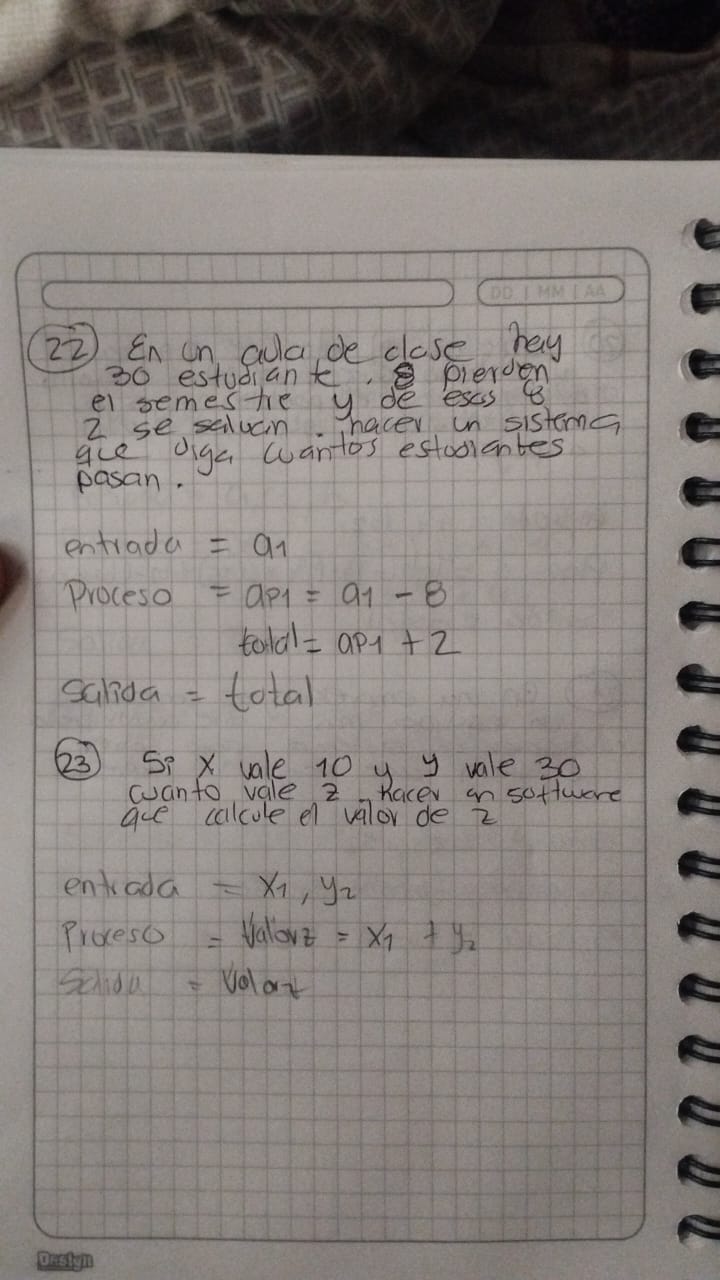 DD | MM | AA
22 En un aula de clase hay
30 estudiante. 8 pierden
el semestre y de esas 8
2 se salvan. hacer un sistema
que diga cuantos estudiantes
pasan.
entrada = a1
Proceso = ap1 = a1 - 8
total = ap1 + 2
Salida = total
23 Si X vale 10 y y vale 30
cuanto vale z. Hacer un software
que calcule el valor de z
entrada = X1, y2
Proceso = Valorz = X1 + y2
Salida = Valorz
Design